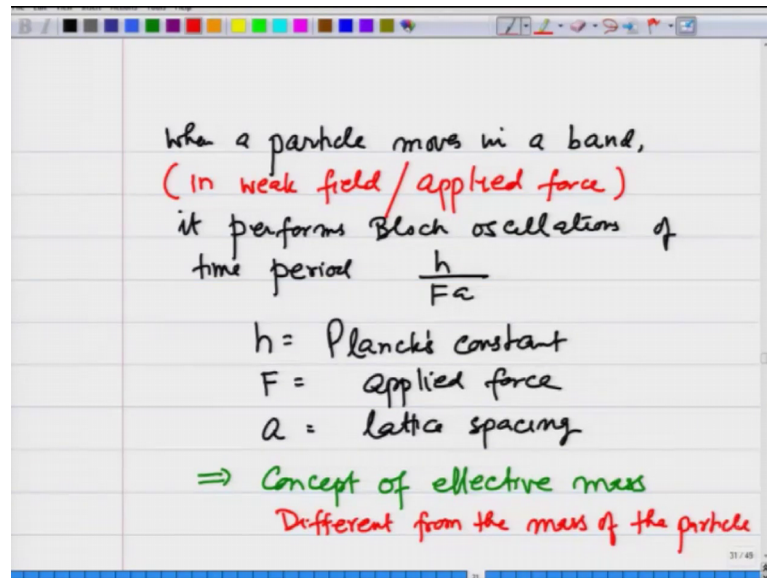 when a particle moves in a band,
(in weak field / applied force)
it performs Bloch oscillations of
time period h
Fa
h = Planck's constant
F = applied force
a = lattice spacing
⇒ Concept of effective mass
Different from the mass of the particle
31 / 49